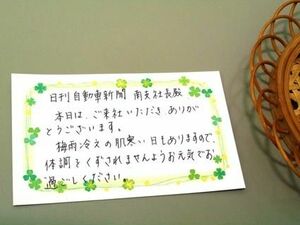 日刊自動車新聞 南矢社長殿
本日は、ご来社いただき、ありが
とうございます。
梅雨冷えの肌寒い日もありますので、
体調をくずされませんようお元気でお
過ごしください。